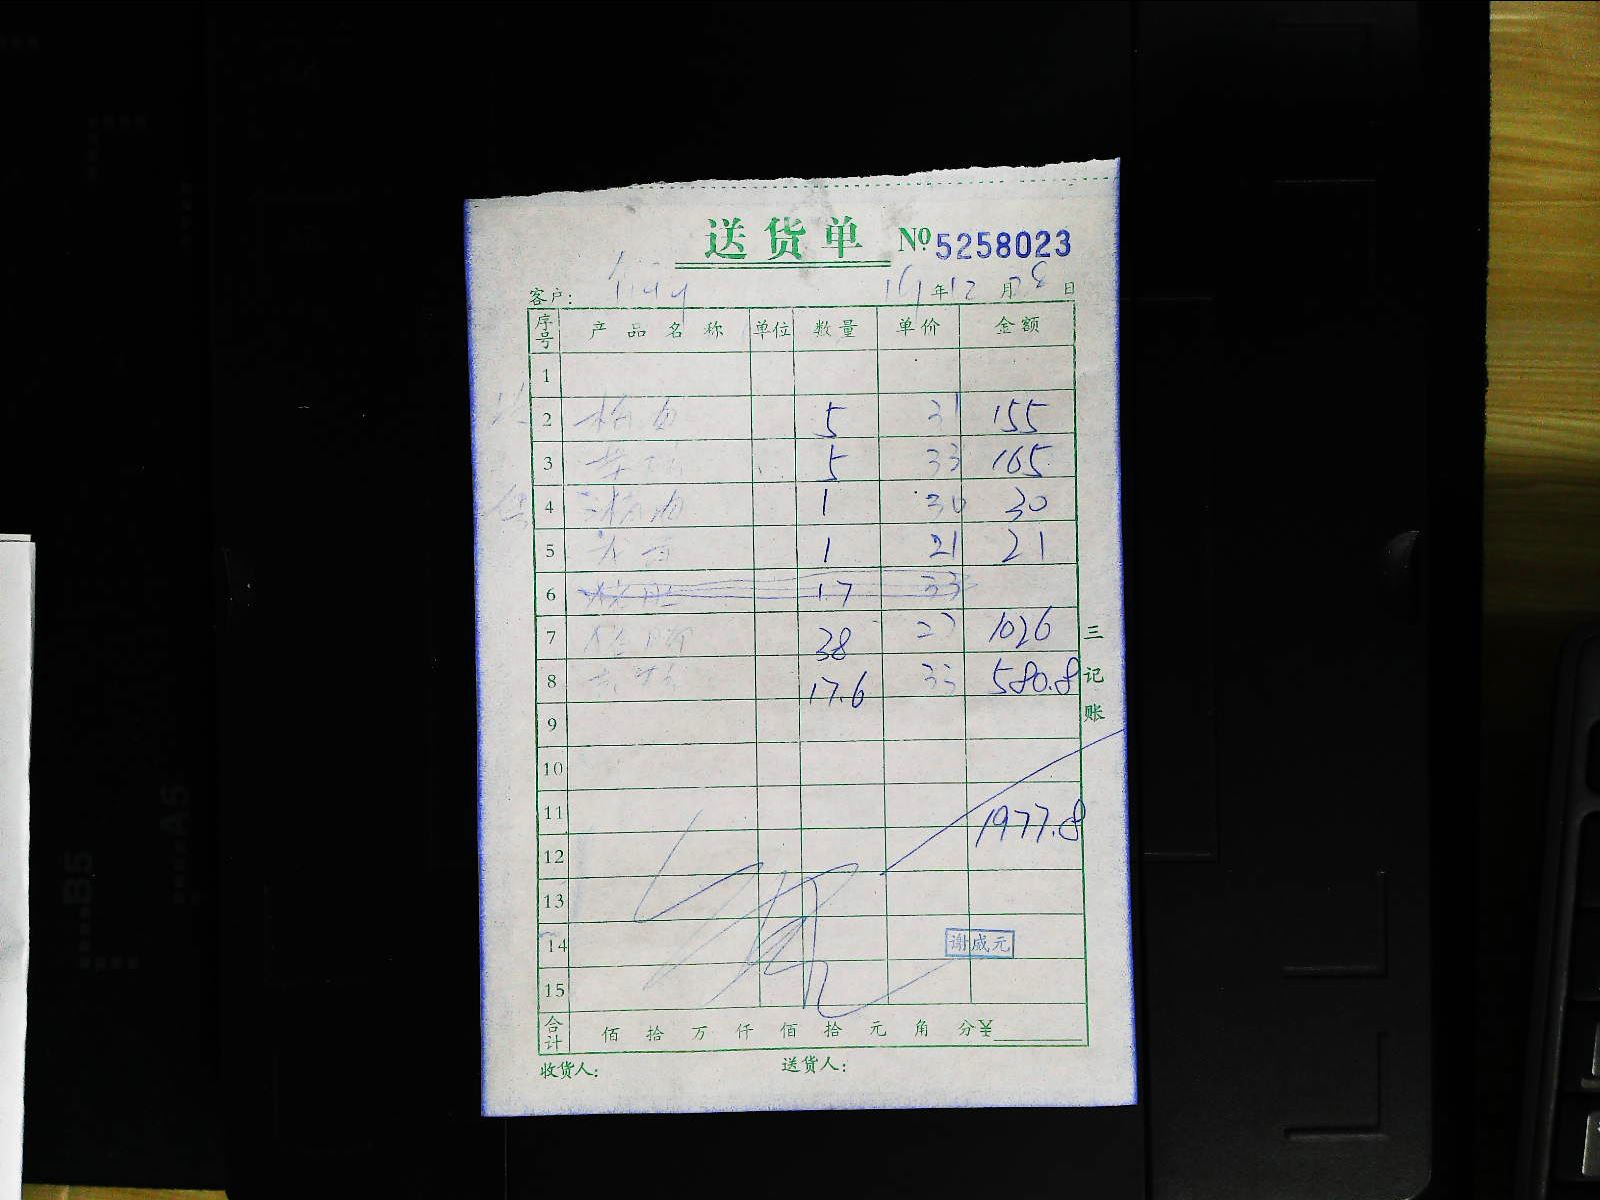 送货单 №5258023
客户: 年12月28日
序号 产品名称 单位 数量 单价 金额
1
2 5 31 155
3 5 33 165
4 1 30 30
5 1 21 21
6 17 33
7 38 27 1026
8 17.6 33 580.8
9
10
11 1977.8
12
13
14 谢威元
15
合计 佰 拾 万 仟 佰 拾 元 角 分¥
收货人: 送货人:
三记账
B5
A5